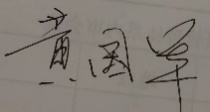 黄国军